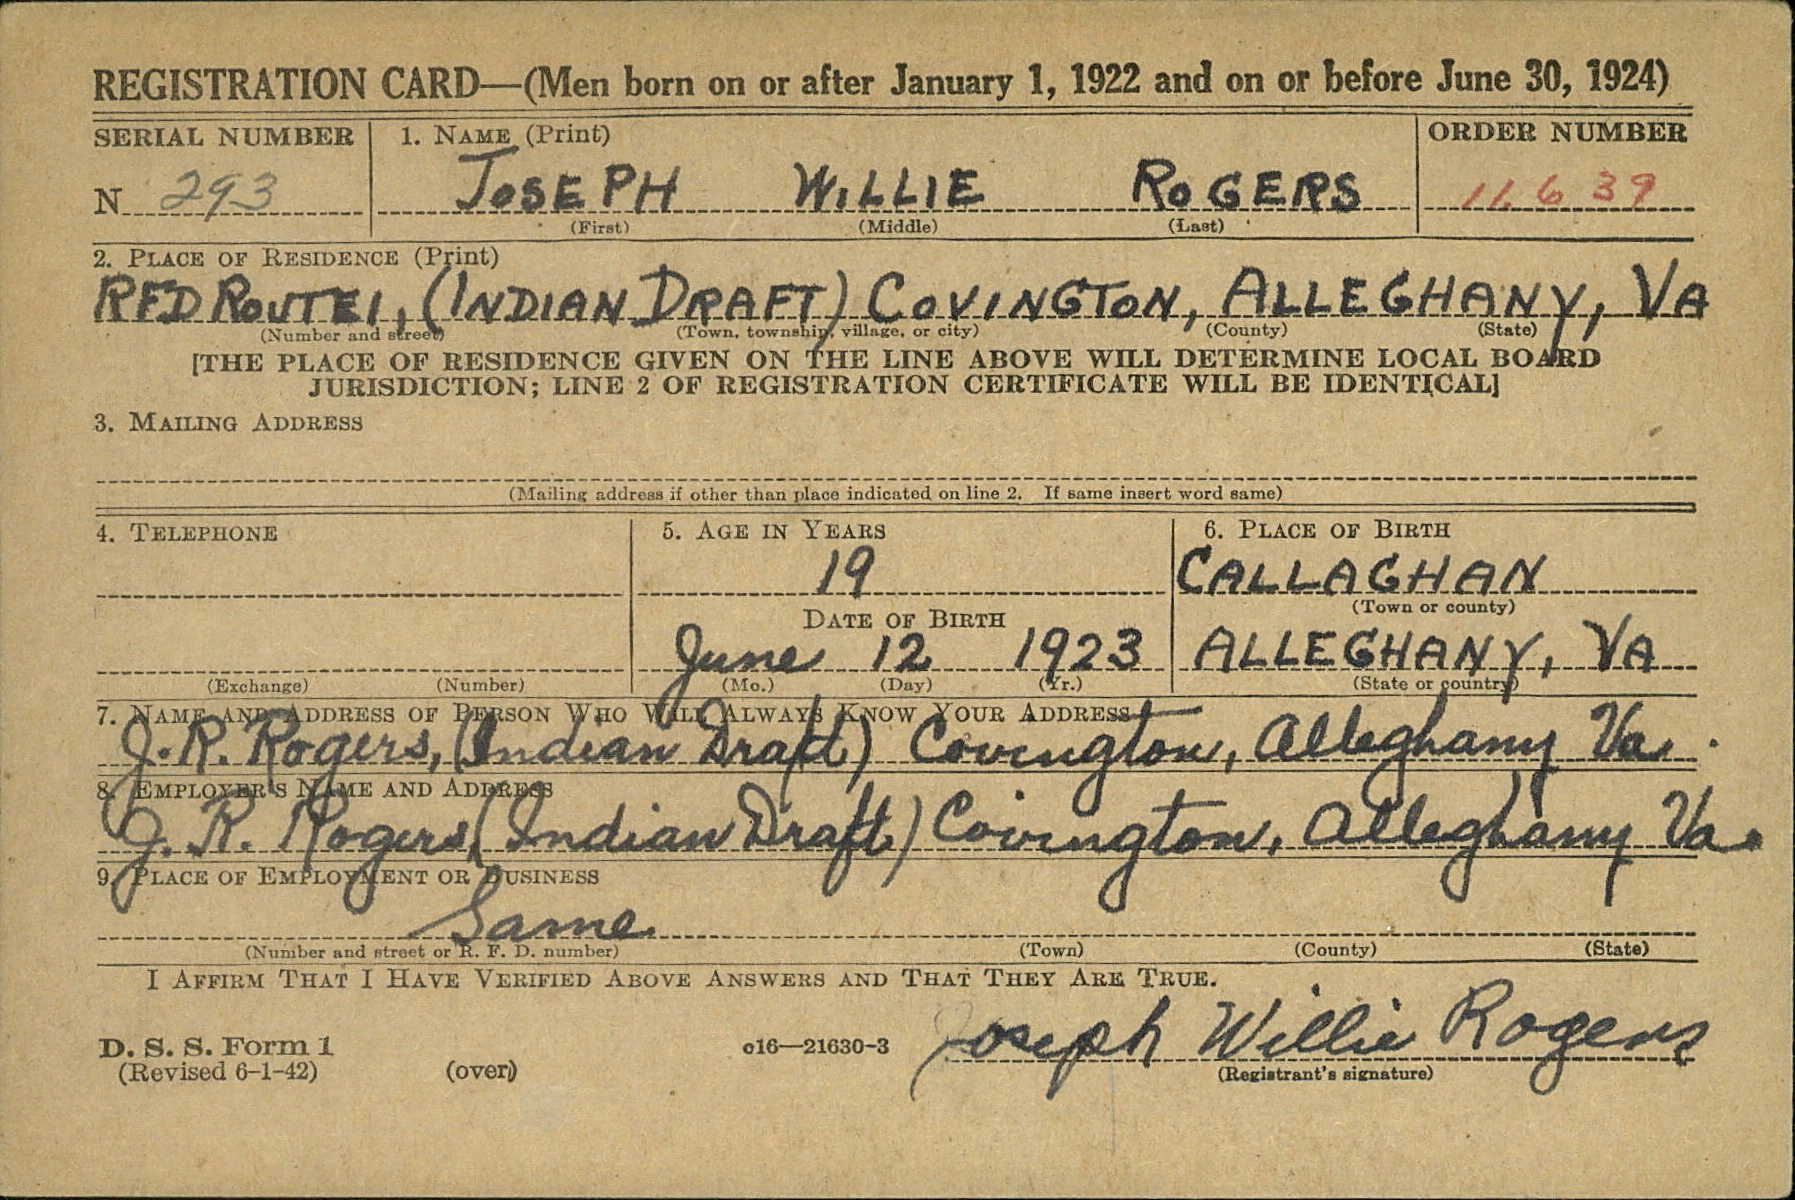 REGISTRATION CARD—(Men born on or after January 1, 1922 and on or before June 30, 1924)
SERIAL NUMBER
1. NAME (Print)
ORDER NUMBER
N 293
JOSEPH WILLIE ROGERS
11,639
(First) (Middle) (Last)
2. PLACE OF RESIDENCE (Print)
RFD ROUTE 1, (INDIAN DRAFT) COVINGTON, ALLEGHANY, VA
(Number and street) (Town, township, village, or city) (County) (State)
[THE PLACE OF RESIDENCE GIVEN ON THE LINE ABOVE WILL DETERMINE LOCAL BOARD
JURISDICTION; LINE 2 OF REGISTRATION CERTIFICATE WILL BE IDENTICAL]
3. MAILING ADDRESS
(Mailing address if other than place indicated on line 2. If same insert word same)
4. TELEPHONE
5. AGE IN YEARS
6. PLACE OF BIRTH
19
CALLAGHAN
(Town or county)
DATE OF BIRTH
June 12 1923
ALLEGHANY, VA
(Exchange) (Number)
(Mo.) (Day) (Yr.)
(State or country)
7. NAME AND ADDRESS OF PERSON WHO WILL ALWAYS KNOW YOUR ADDRESS
J. R. Rogers, (Indian Draft) Covington, Alleghany Va.
8. EMPLOYER'S NAME AND ADDRESS
J. R. Rogers, (Indian Draft) Covington, Alleghany Va.
9. PLACE OF EMPLOYMENT OR BUSINESS
Same
(Number and street or R. F. D. number) (Town) (County) (State)
I AFFIRM THAT I HAVE VERIFIED ABOVE ANSWERS AND THAT THEY ARE TRUE.
Joseph Willie Rogers
(Registrant's signature)
D. S. S. Form 1
(Revised 6-1-42)
(over)
c16—21630-3